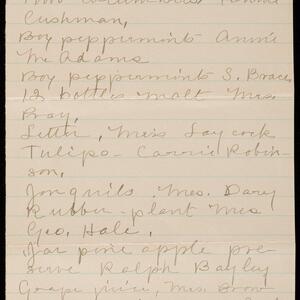 Cushman,
Box peppermint Annie
McAdams
Box peppermints S. Brace,
12 bottles malt Mrs.
Bray,
Letter, Miss Laycock
Tulips - Carrie Robin-
son,
Jonquils. Mrs. Dary
Rubber - plant Mrs
Geo, Hale,
Jar pine apple pre-
serve Ralph Bayley
Grape juice, Mrs. Brow